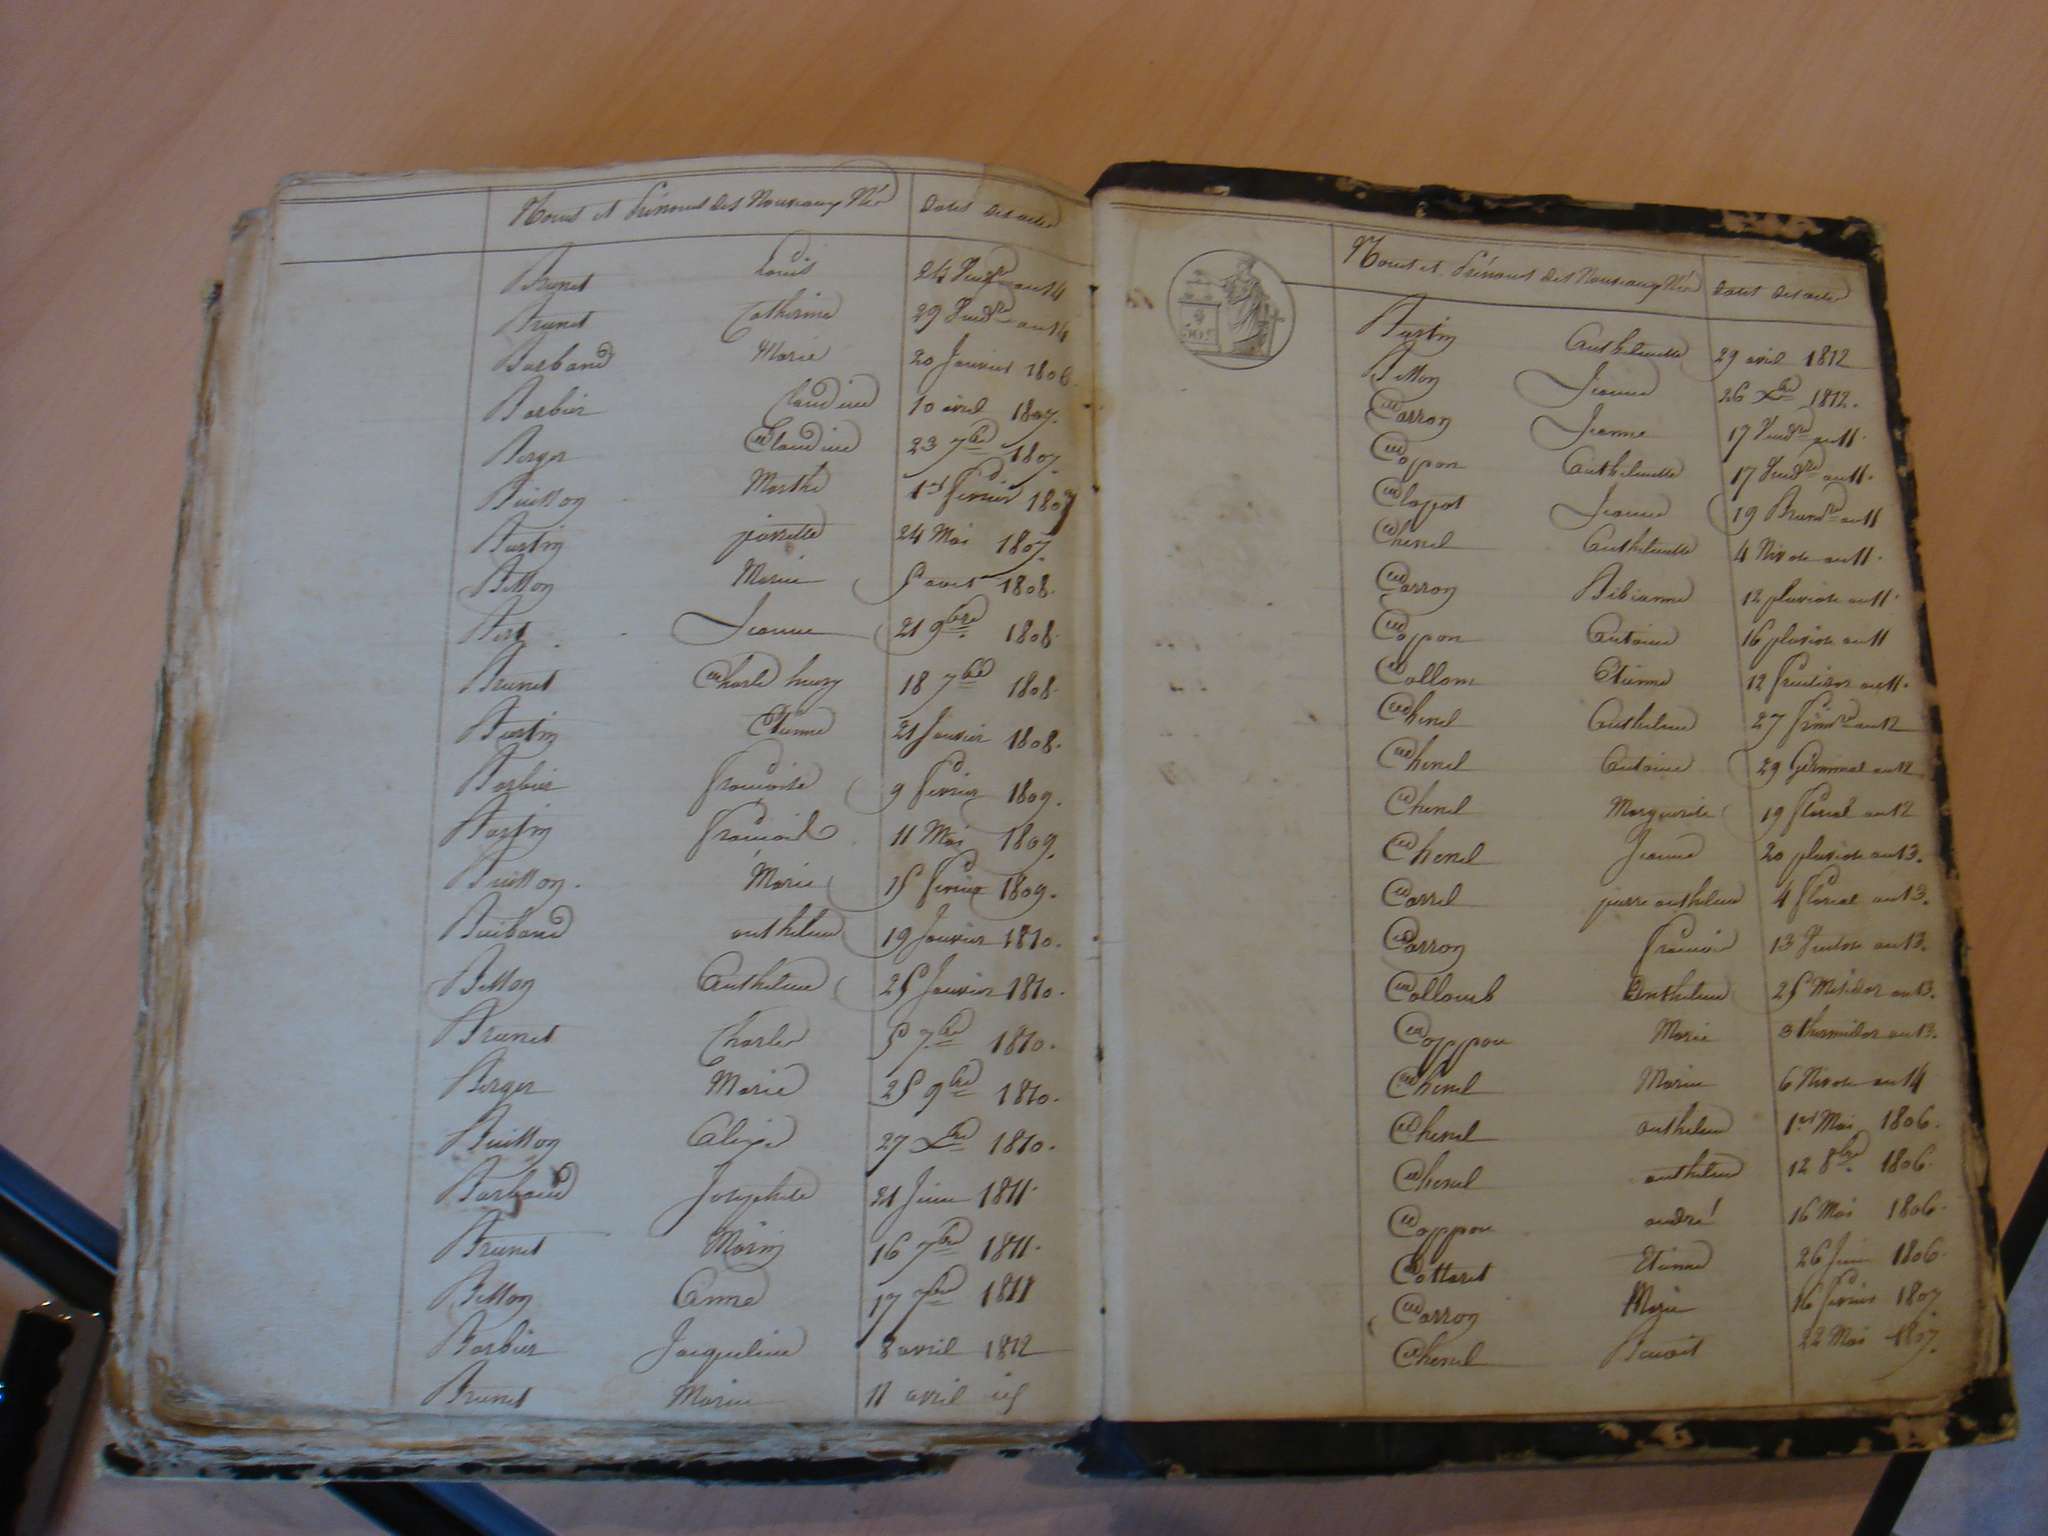 Noms et Prénoms des Nouveaux Nés Dates des actes
Brunet Louis 24 Vend.re an 14
Brunet Catherine 29 Vend.re an 14
Barband Marie 20 Janvier 1806.
Barbier Claudine 10 avril 1807.
Berger Claudine 23 7bre 1807.
Buisson Marthe 1er février 1807
Bertin pierrette 24 Mai 1807.
Billon Marie 5 avril 1808.
Bert Jeanne 21 9bre 1808.
Brunet Charle henry 18 7bre 1808.
Bertin Etienne 21 Janvier 1808.
Barbier françoise 9 février 1809.
françois 11 Mai 1809.
Buisson. Marie 15 février 1809.
anthelme 19 Janvier 1810.
Billon Anthelme 25 Janvier 1810.
Brunet Charles 5 7bre 1810.
Berger Marie 25 9bre 1810.
Buisson Alexis 27 Xbre 1810.
Barband Josephte 21 Juin 1811.
Brunet Marin 16 7bre 1811.
Billon Anne 17 7bre 1811
Barbier Jacqueline 8 avril 1812
Brunet Marie 11 avril id
Noms et Prénoms des Nouveaux Nés Dates des actes
Anthelmette 29 avril 1812
Billon Jeanne 26 Xbre 1812.
Carron Jeanne 17 Vend.re an 11.
Copon Anthelmette 17 Vend.re an 11.
Clapot Jeanne 19 Brum.re an 11
Chenel Anthelmette 4 Nivose an 11.
Carron Bibianne 12 pluviose an 11.
Copon Antoine 16 pluviose an 11
Collom Etienne 12 fructidor an 11.
Chenel Anthelme 27 frim.re an 12
Chenel Antoine 29 Germinal an 12
Chenel Marguerite 19 floreal an 12
Chenel Jeanne 20 pluviose an 13.
Carrel pierre anthelme 4 floreal an 13.
Carron françois 13 Ventose an 13.
Collomb Anthelme 25 Messidor an 13.
Coppon Marie 3 thermidor an 13.
Chenel Marie 6 Nivose an 14
Chenel anthelme 1er Mai 1806.
Chenel anthelme 12 8bre 1806.
Coppon andré 16 Mai 1806.
Cottaret Etienne 26 Juin 1806.
Carron Marie 16 février 1807.
Chenel Benoit 22 Mai 1807.